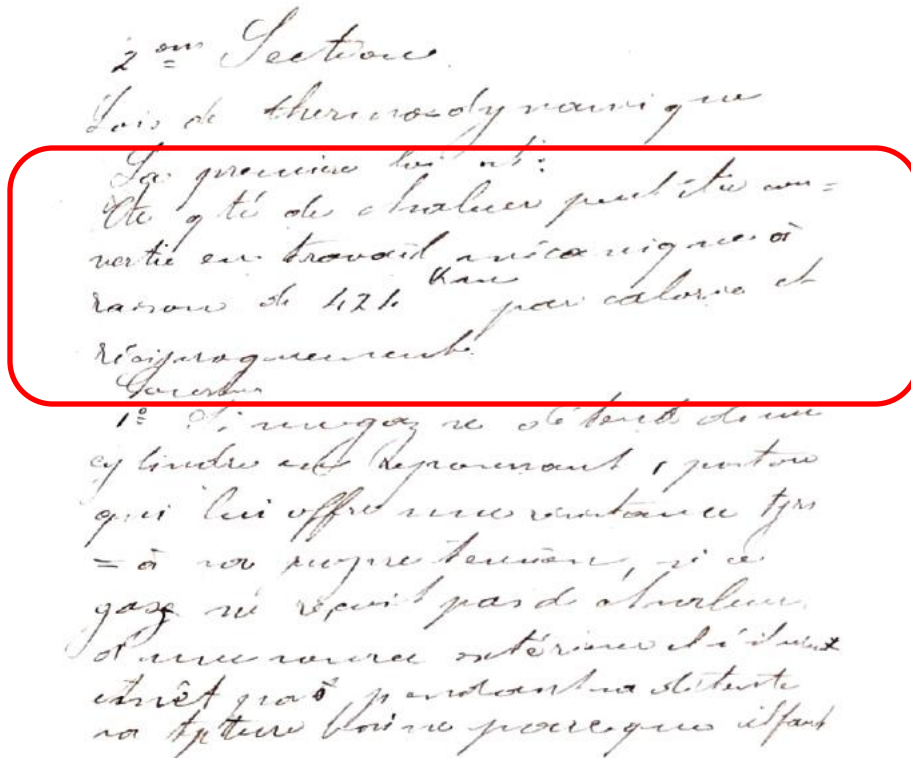 2 eme Section
Lois de thermodynamique
La première loi est:
Tte qté de chaleur peut être con=
vertie en travail mécanique à
raison de 424 Kgm par calorie et
réciproquement
1º Si un gaz se détend dans un
cylindre en repoussant 1 piston
qui lui offre une résistance tjrs
= à sa propre tension, si ce
gaz ne reçoit pas de chaleur
d'une source extérieure et s'il n'en
émet pas pendant sa détente
sa tpture baisse parce que il faut